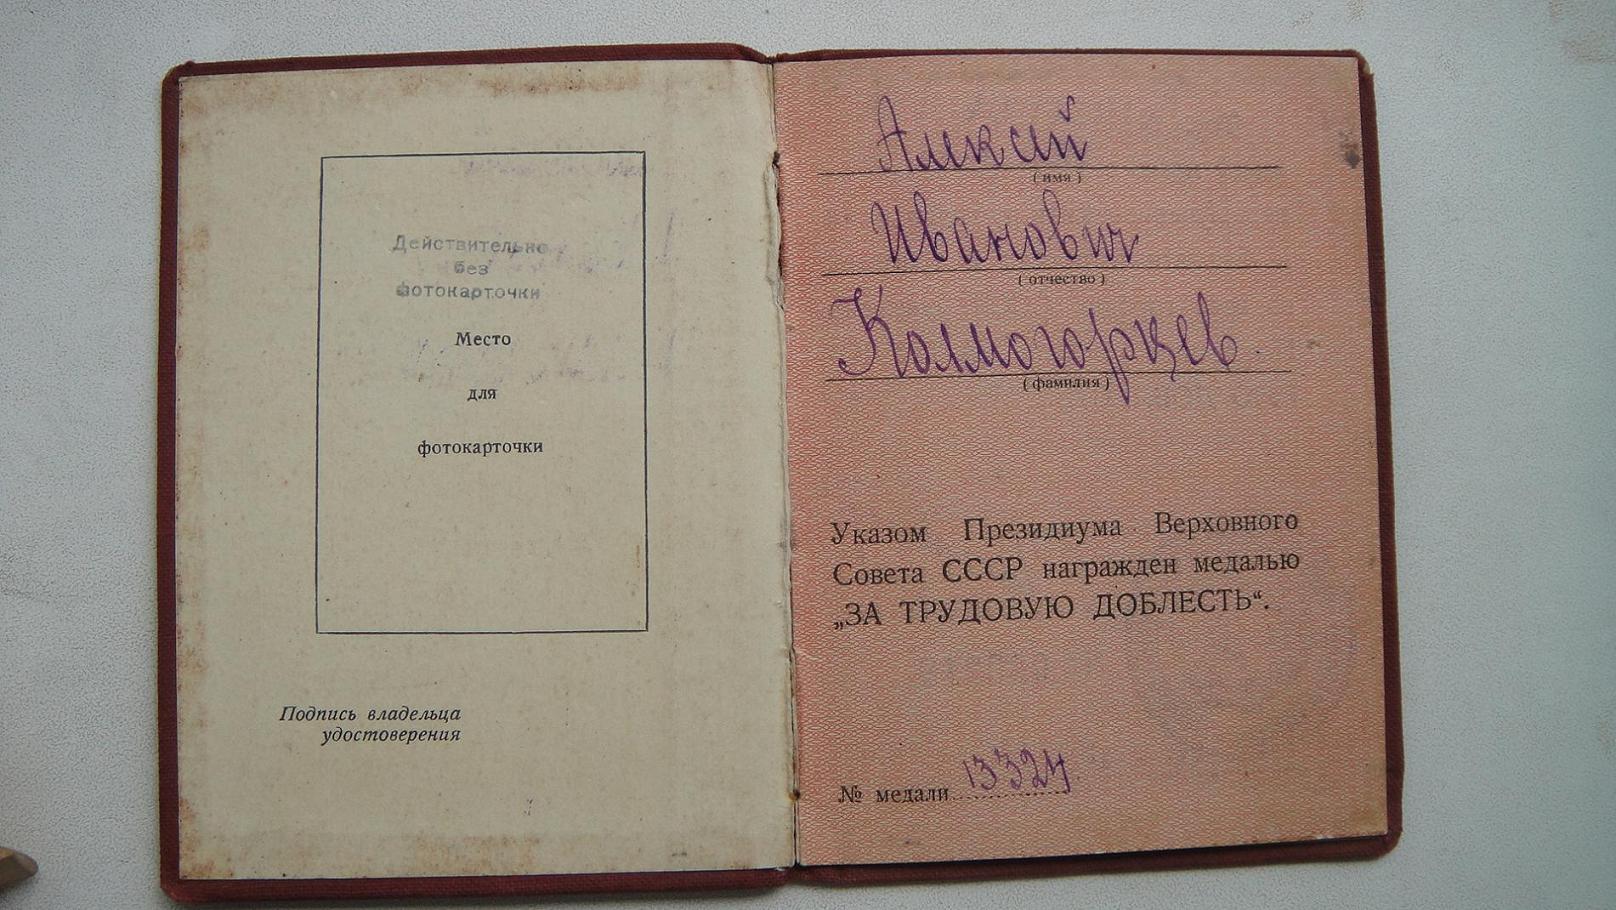 Действительно
без
фотокарточки
Место
для
фотокарточки
Подпись владельца
удостоверения
Алексей
( имя )
Иванович
( отчество )
Колмогорцев.
( фамилия )
Указом Президиума Верховного
Совета СССР награжден медалью
„ЗА ТРУДОВУЮ ДОБЛЕСТЬ“.
№ медали 13324